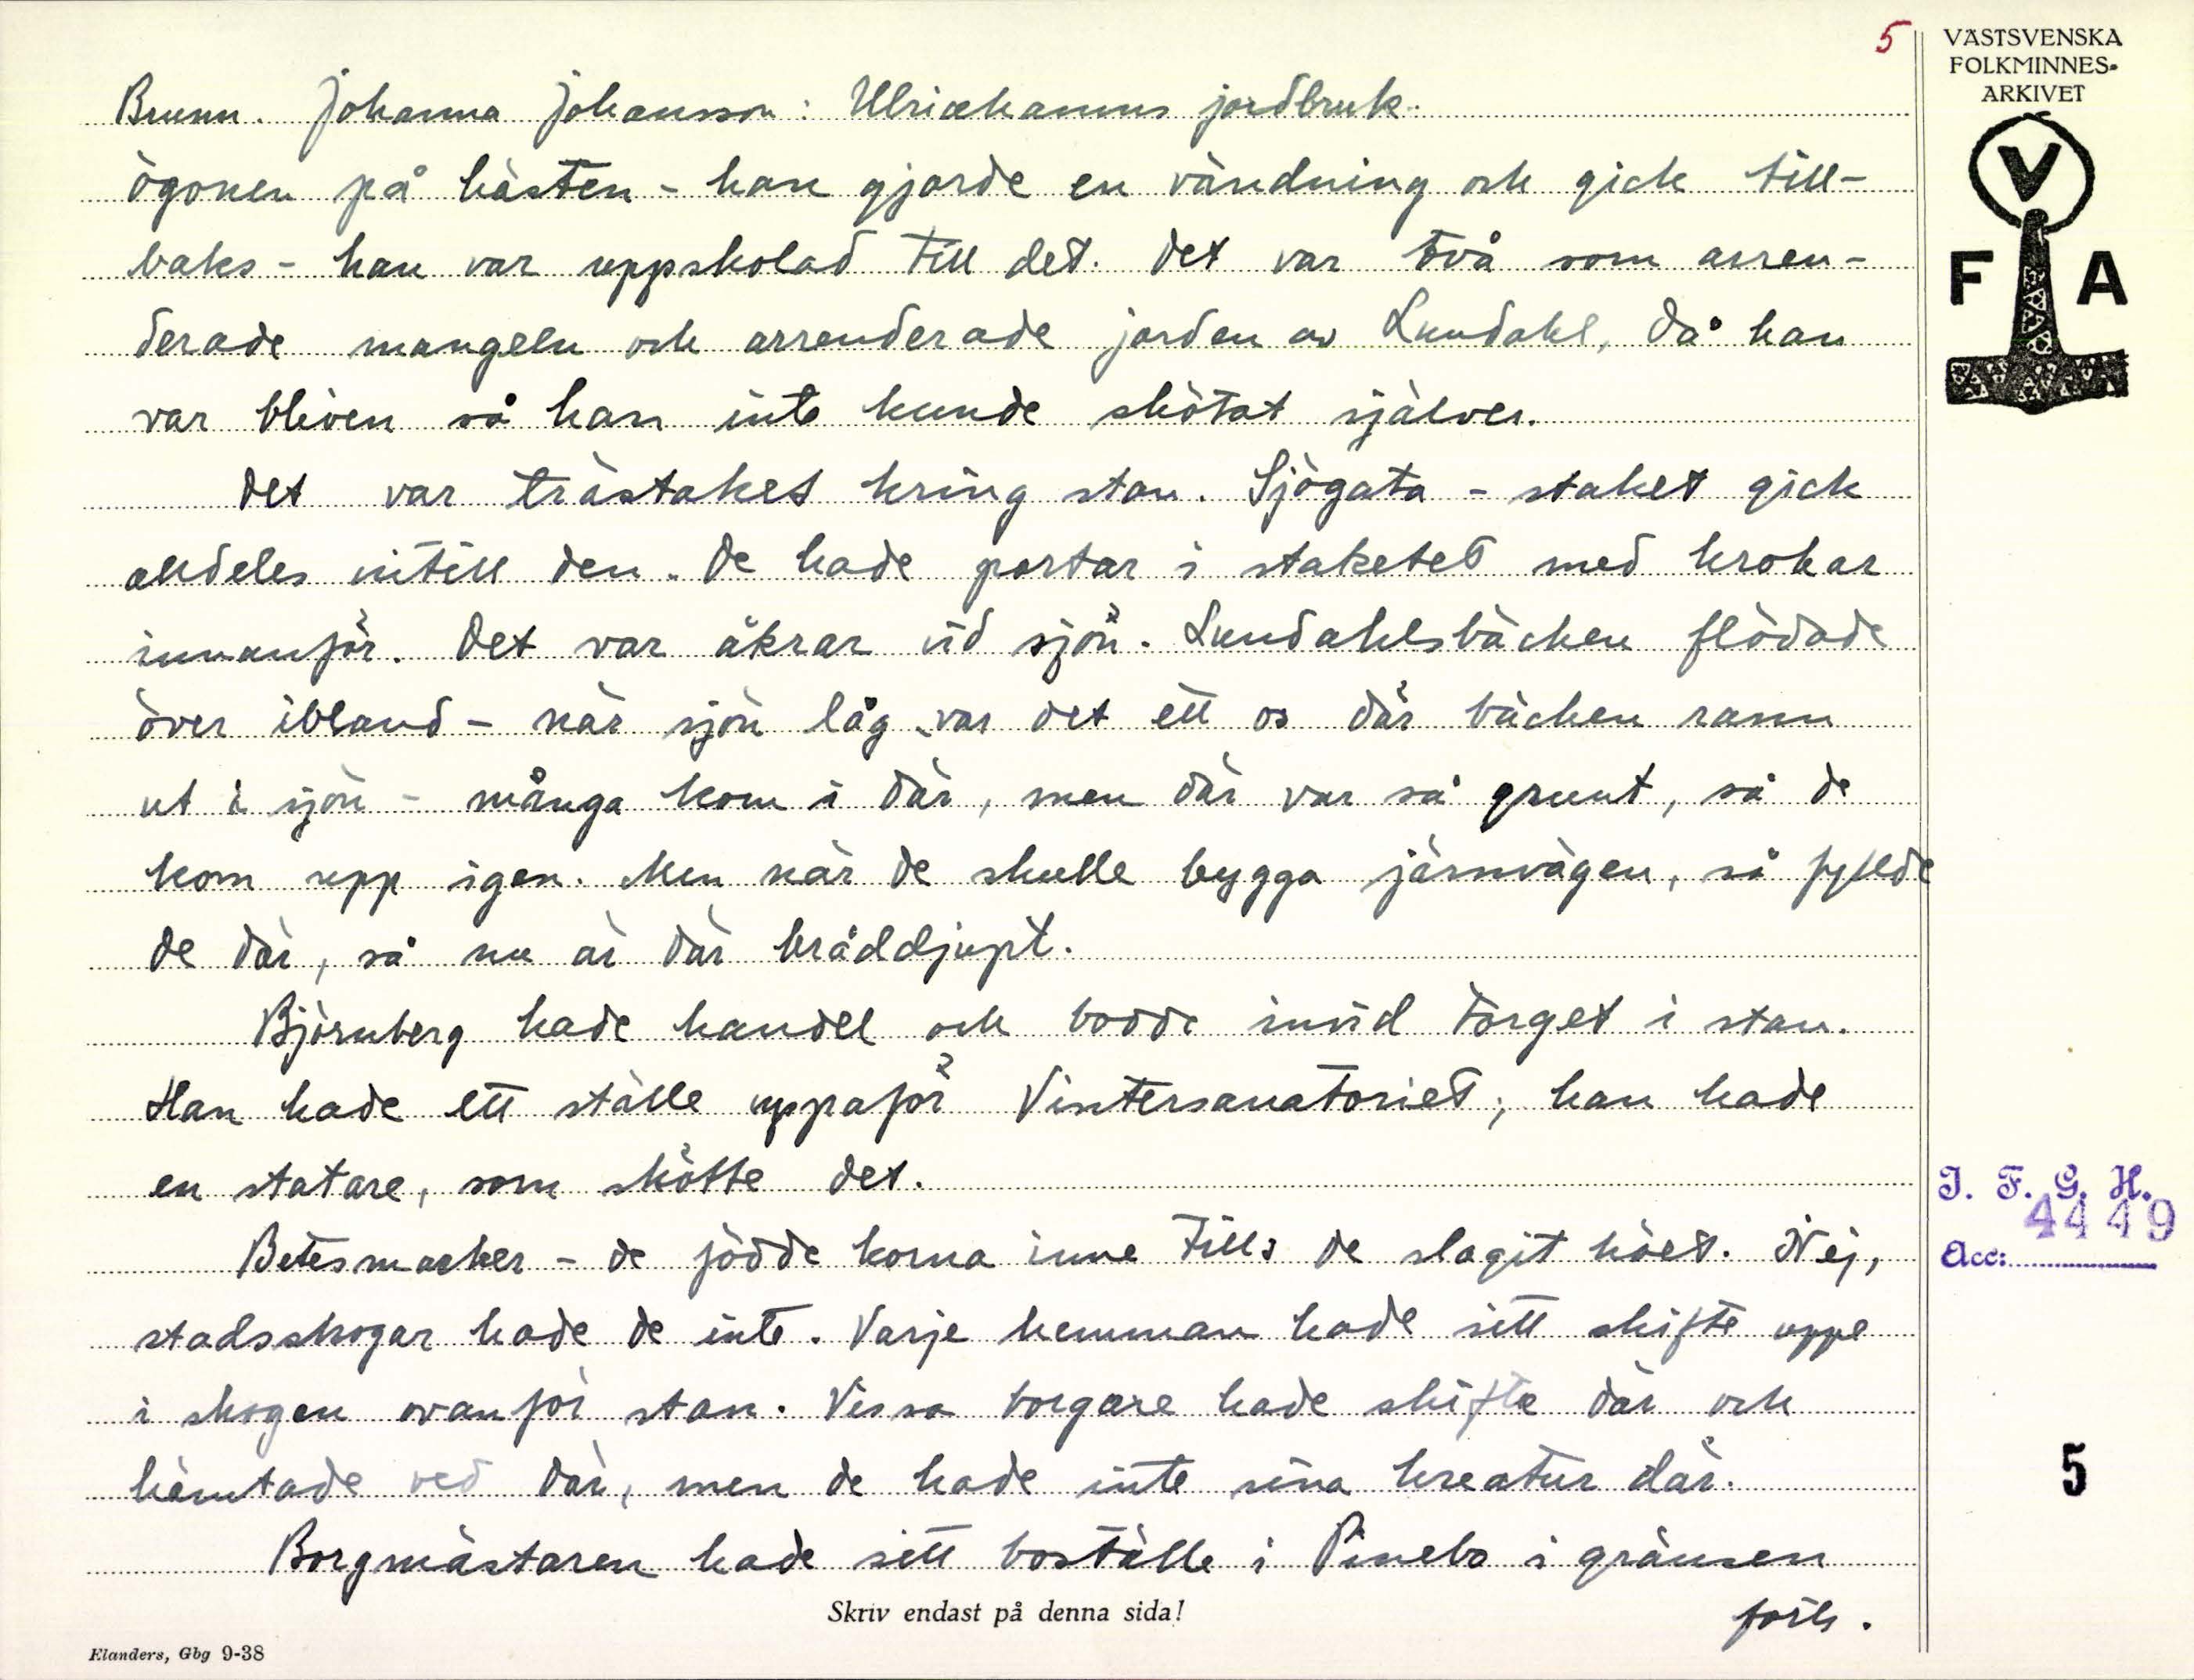 5
VÄSTSVENSKA
FOLKMINNES-
ARKIVET
V
F A
Brunn. Johanna Johansson: Ulricehamns jordbruk.
ögonen på hästen - han gjorde en vändning och gick till-
baks - han var uppskolad till det. Det var två som arren-
derade mangeln och arrenderade jorden av Lundahl, då han
var bliven så han inte kunde skötat själver.
Det var trästaket kring stan. Sjögata - staket gick
alldeles intill den. De hade portar i staketet med krokar
innanför. Det var åkrar vid sjön. Lundahlsbäcken flödade
över ibland - när sjön låg var det ett os där bäcken rann
ut i sjön - många kom i där, men där var så grunt, så de
kom upp igen. Men när de skulle bygga järnvägen, så fyllde
de där, så nu är där bråddjupt.
Björnberg hade handel och bodde invid torget i stan.
Han hade ett ställe uppaför Vintersanatoriet; han hade
en statare, som skötte det.
Betesmarker - de födde korna inne tills de slagit höet. Nej,
stadsskogar hade de inte. Varje hemman hade sitt skifte uppe
i skogen ovanför stan. Vissa borgare hade skifte där och
hämtade ved där, men de hade inte sina kreatur där.
Borgmästaren hade sitt boställe i Pinebo i gränsen
forts.
Skriv endast på denna sida!
Elanders, Gbg 9-38
I. F. G. H.
4449
Acc:
5